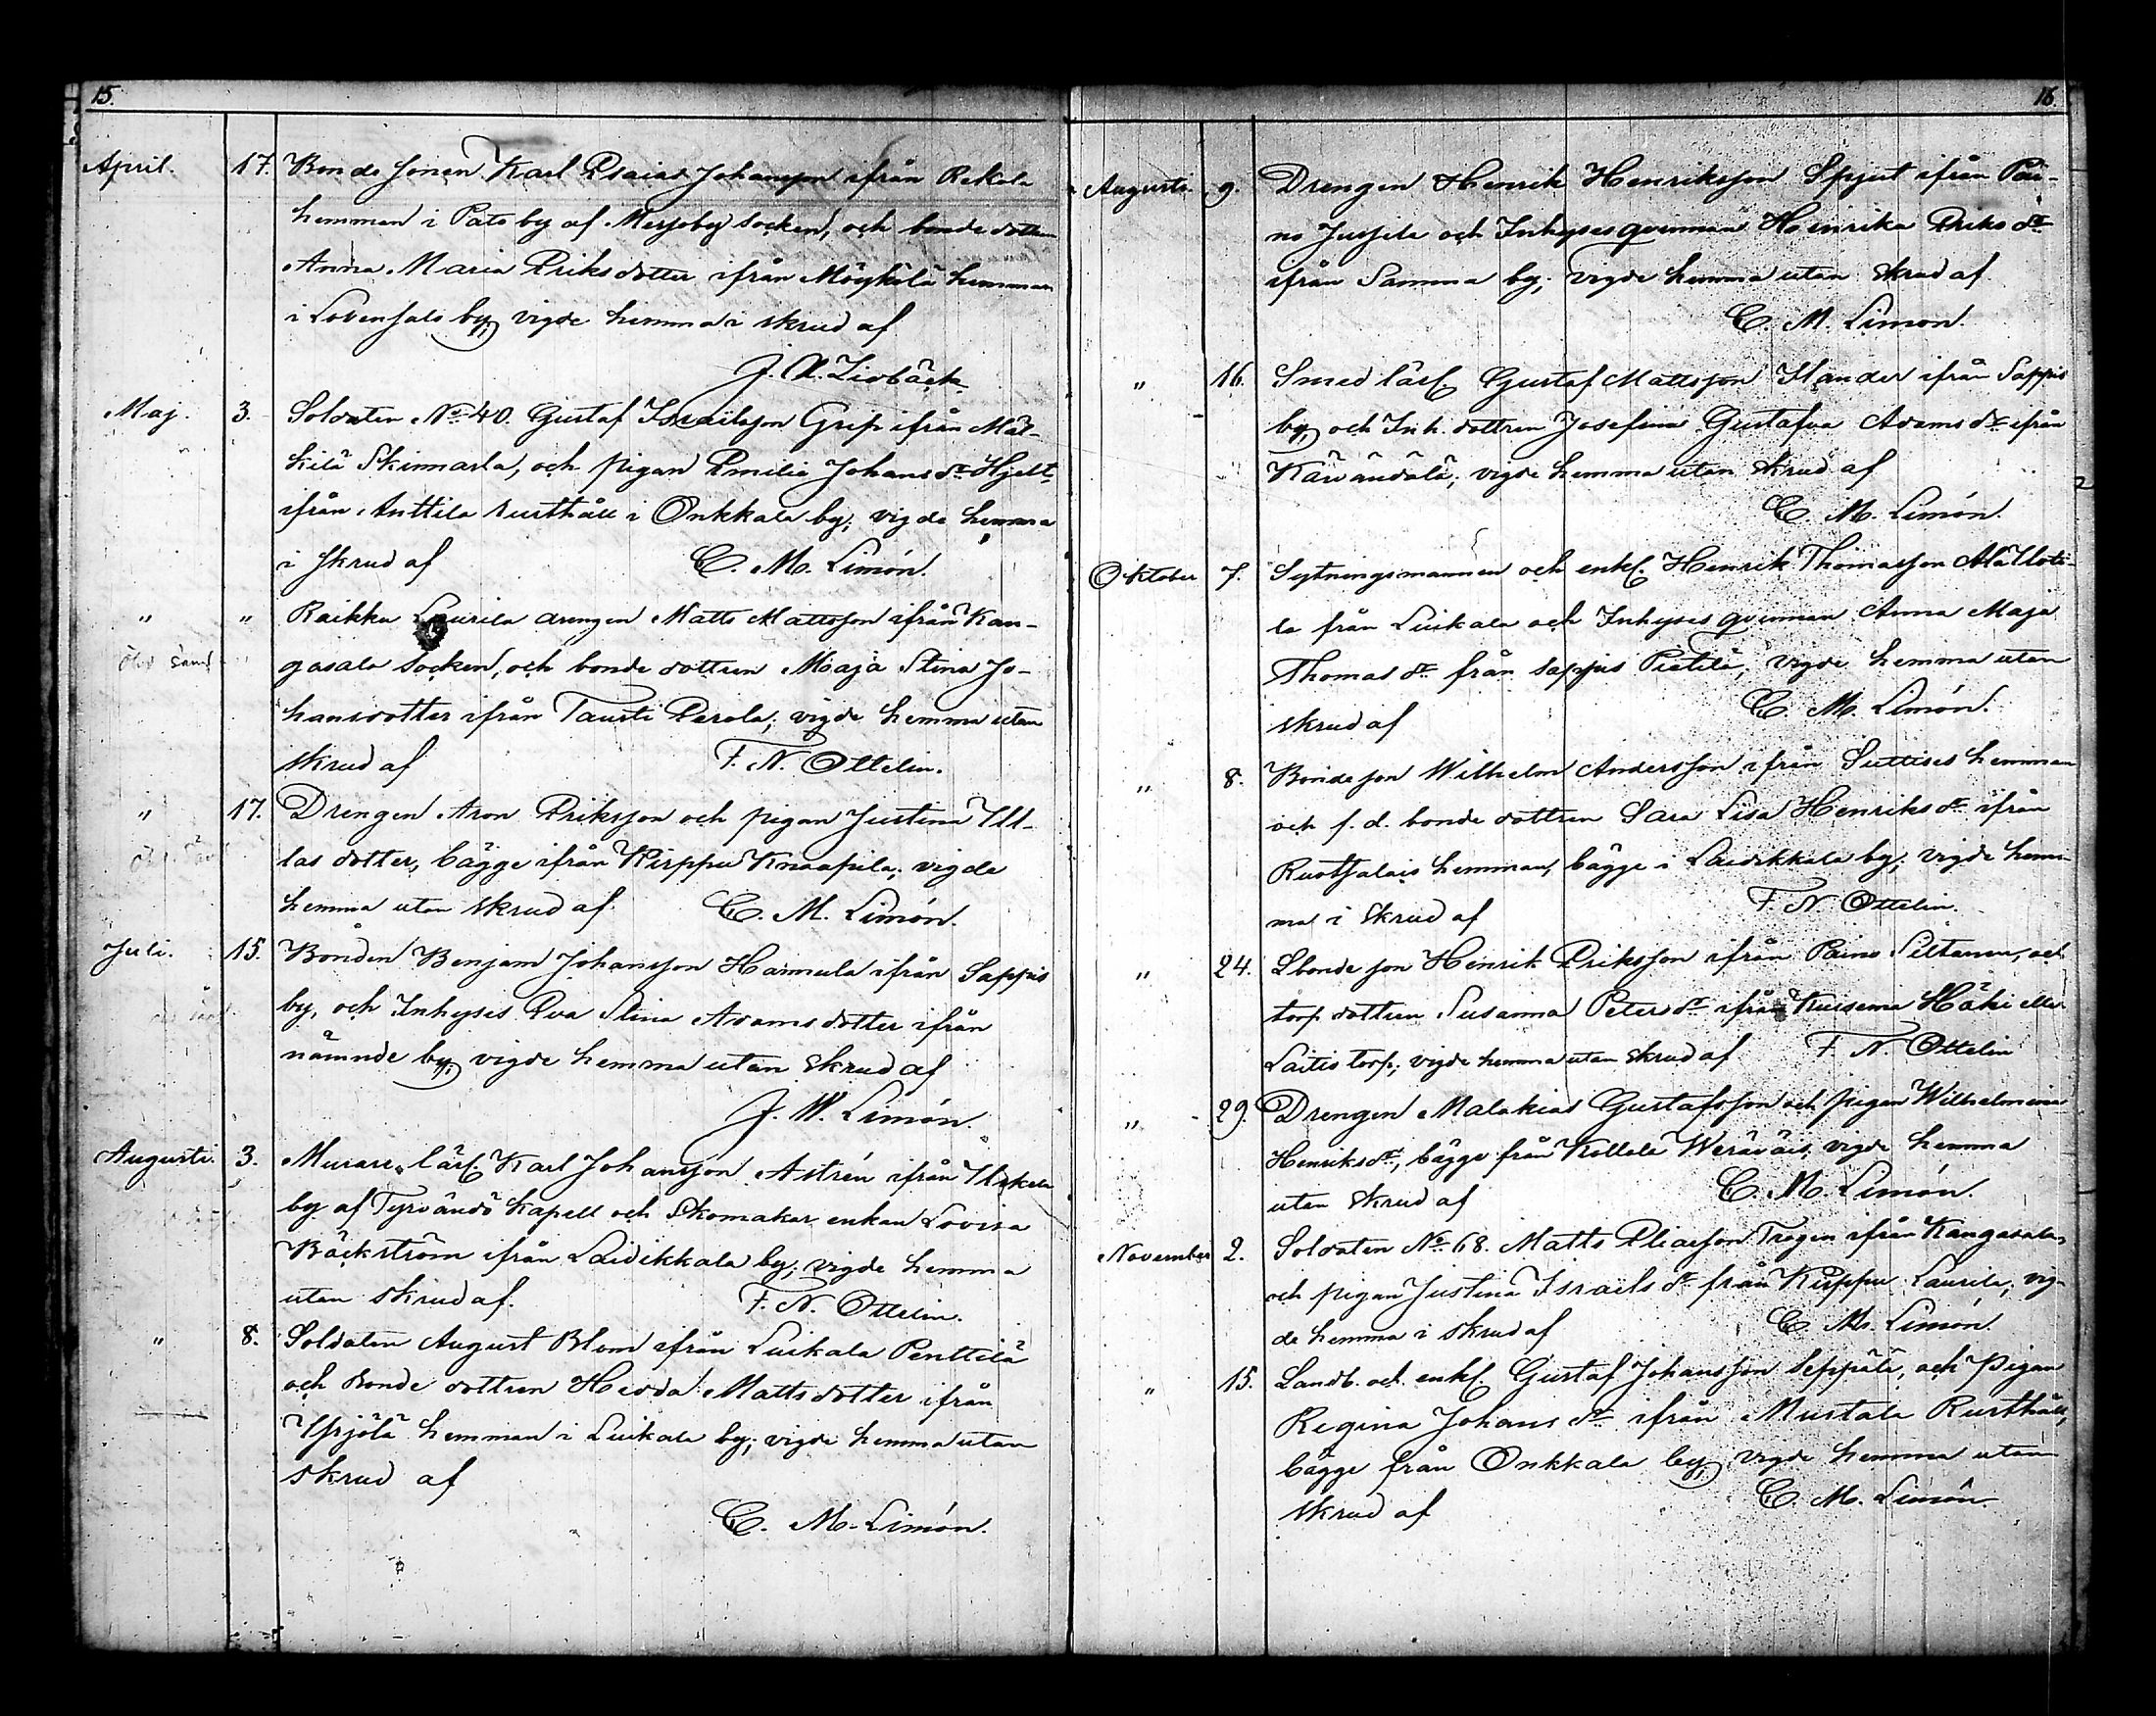 15.
April. 17. Bonde sonen Karl Esaias Johansson ifrån Rekola
hemman i Pato by af Messoby socken, och bonde dottren
Anna Maria Eriksdotter ifrån Möykälä hemman
i Lovensalo by; vigde hemma i skrud af
J. A. Zidbäck
Maj. 3. Soldaten No 40. Gustaf Israëlsson Grip ifrån Mäl-
kilä Skinnarla, och pigan Emilia Johans dr Hjelt,
ifrån Anttila rusthåll i Onkkala by; vigde hemma
i skrud af C. M. Limón.
" " Raikku Laurila drengen Matts Mattsson ifrån Kan-
gasala socken, och bonde dottren Maja Stina Jo-
hansdotter ifrån Tausti Perola; vigde hemma utan
skrud af F. N. Ottelin.
" 17. Drengen Aron Eriksson och pigan Justina Ul-
las dotter, bägge ifrån Kirppu Knaapila; vigde
hemma utan skrud af C. M. Limón.
Juli. 15. Bonden Benjam Johansson Hannula ifrån Sappis
by, och Inhyses Eva Stina Adamsdotter ifrån
nämnde by; vigde hemma utan skrud af
J. W. Limón.
Augusti. 3. Murare lärl. Karl Johansson Astrén ifrån
by af Tyrvändö Kapell och Skomakar enkan Lovisa
Bäckström ifrån Laidikkala by; vigde hemma
utan skrud af. F. N. Ottelin.
" 8. Soldaten August Blom ifrån Luikala Penttilä
och Bonde dottren Hedda Matts dotter ifrån
Yspjölä hemman i Luikala by; vigde hemma utan
skrud af
C. M. Limón.
16
Augusti. 9. Drengen Henrik Henriksson Spjut ifrån Pai-
no Jussila och Inhyses qvinnan Heinrika Eriks dr
ifrån Samma by; vigde hemma utan skrud af
C. M. Limon.
" 16. Smed lärl. Gustaf Mattsson Ilander ifrån Sappis
by, och Inh. dottren Josefina Gustafva Adams dr ifrån
Kärvändälä; vigde hemma utan skrud af
C. M. Limón.
Oktober 7. Sytningsmannen och enkl. Henrik Thomasson
la från Luikala och Inhyses qvinnan Anna Maja
Thomas dr från sappis Pietilä; vigde hemma utan
skrud af C. M. Limón.
" 8. Bonde son Wilhelm Andersson ifrån Suttises hemman
och f. d. bonde dottren Sara Lisa Henriks dr ifrån
Ruotsalais hemman, bägge i Laidikkala by; vigde hem-
ma i skrud af F. N. Ottelin.
" 24. Lbonde son Henrik Eriksson ifrån Paino Siltanen, och
torp dottren Susanna Peters dr ifrån Kuisema Häki eller
Laitis torp; vigde hemma utan skrud af F. N. Ottelin
" 29. Drengen Malakias Gustafsson och pigan Wilhelmina
Henriks dr, bägge från Kollola Weräväis, vigde hemma
utan skrud af C. M. Limón.
November 2. Soldaten No 68. Matts Eliasson Trogen ifrån Kangasala,
och pigan Justina Israëls dr från Kirppu Laurila; vig-
de hemma i skrud af C. M. Limón.
" 15. Landb. och enkl. Gustaf Johansson Seppälä, och Pigan
Regina Johans dr ifrån Mustala Rusthåll,
bägge från Onkkala by; vigde hemma utan
skrud af C. M. Limón.